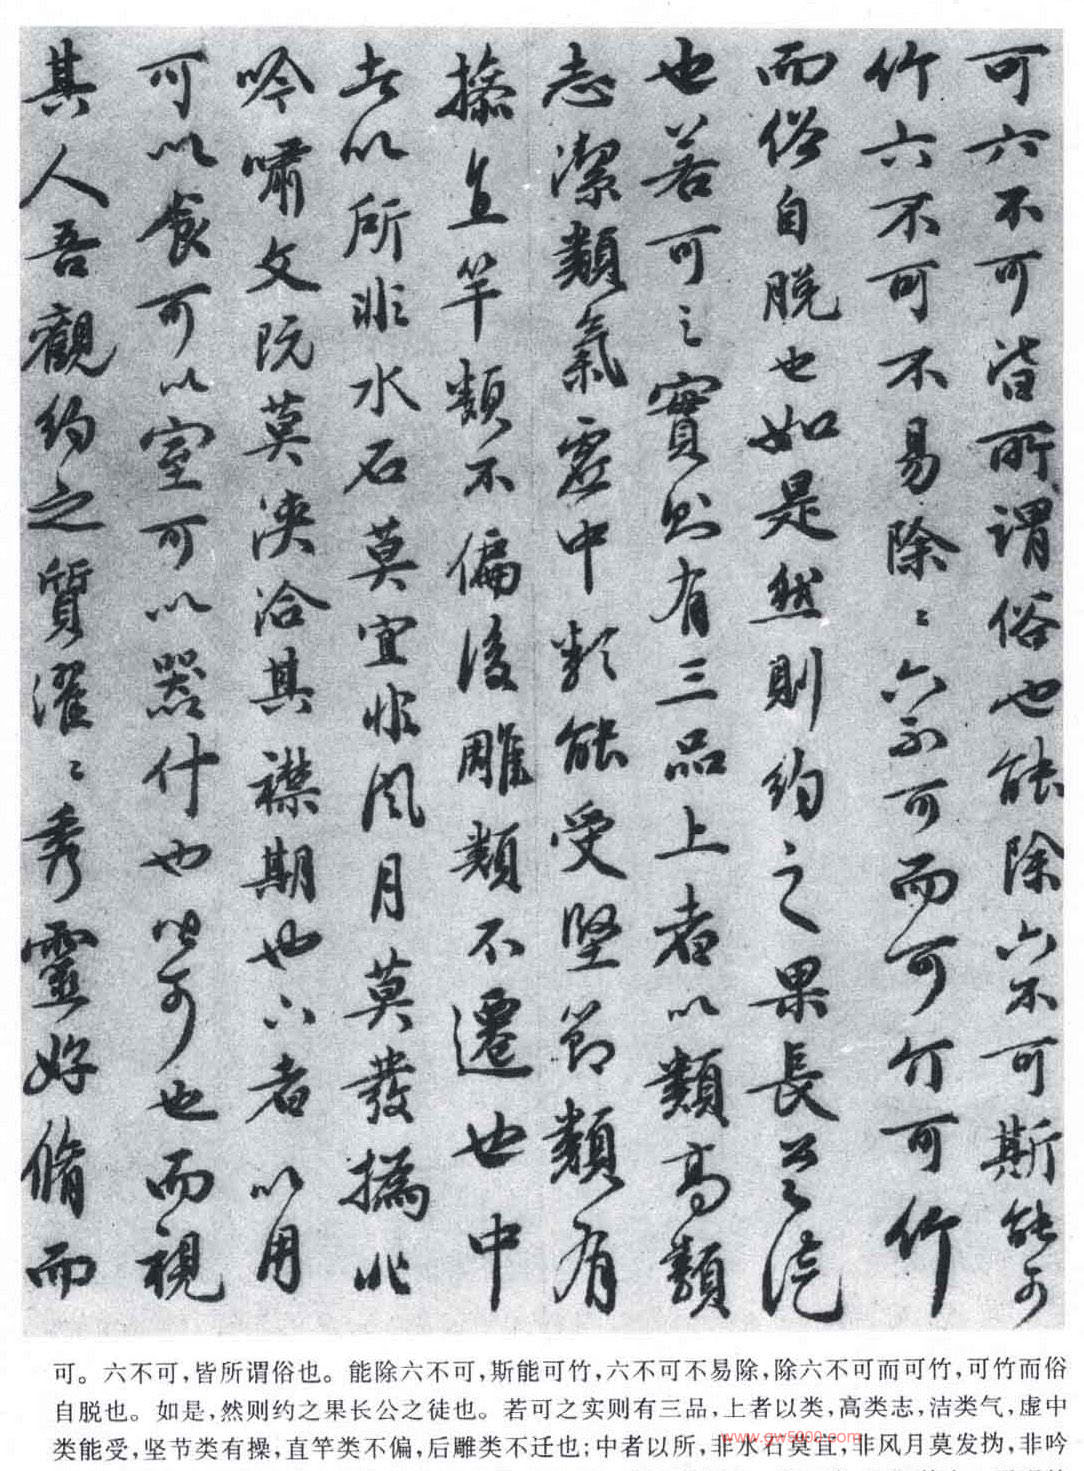 可六不可皆所謂俗也能除六不可斯能可
竹六不可不易除〻六不可而可竹可竹
而俗自脱也如是然則約之果長公之徒
也若可之實則有三品上者以類高類
志潔類氣虛中類能受堅節類有
操直竿類不偏後雕類不遷也中
者以所非水石莫宜非風月莫發撝非
吟嘯文阮莫浹洽其襟期也下者以用
可以食可以室可以器什也但可也而視
其人吾觀約之質濯〻秀靈好脩而
可。六不可,皆所谓俗也。能除六不可,斯能可竹,六不可不易除,除六不可而可竹,可竹而俗
自脱也。如是,然则约之果长公之徒也。若可之实则有三品,上者以类,高类志,洁类气,虚中
类能受,坚节类有操,直竿类不偏,后雕类不迁也;中者以所,非水石莫宜,非风月莫发㧑,非吟